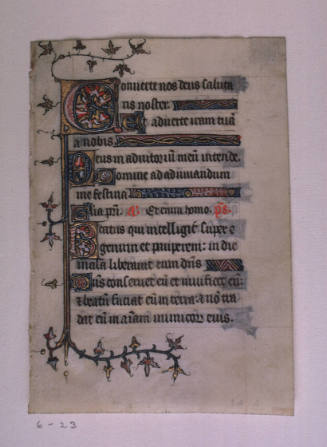 Conuerte nos deus saluta
ris noster.
Et aduerte iram tuā
a nobis.
Deus in adiutoriū meū intende.
Domine ad adiuuandum
me festina
Gl'ia pri. a. Et enim homo. ps.
Beatus qui intelligit super e
genum et pauperem: in die
mala liberauit eum dn̄s
Dn̄s conseruet eū et uiuificet eū:
et beatū faciat eū in terra: et nō tra
dat eū in aīam inimicor eius.
6-23